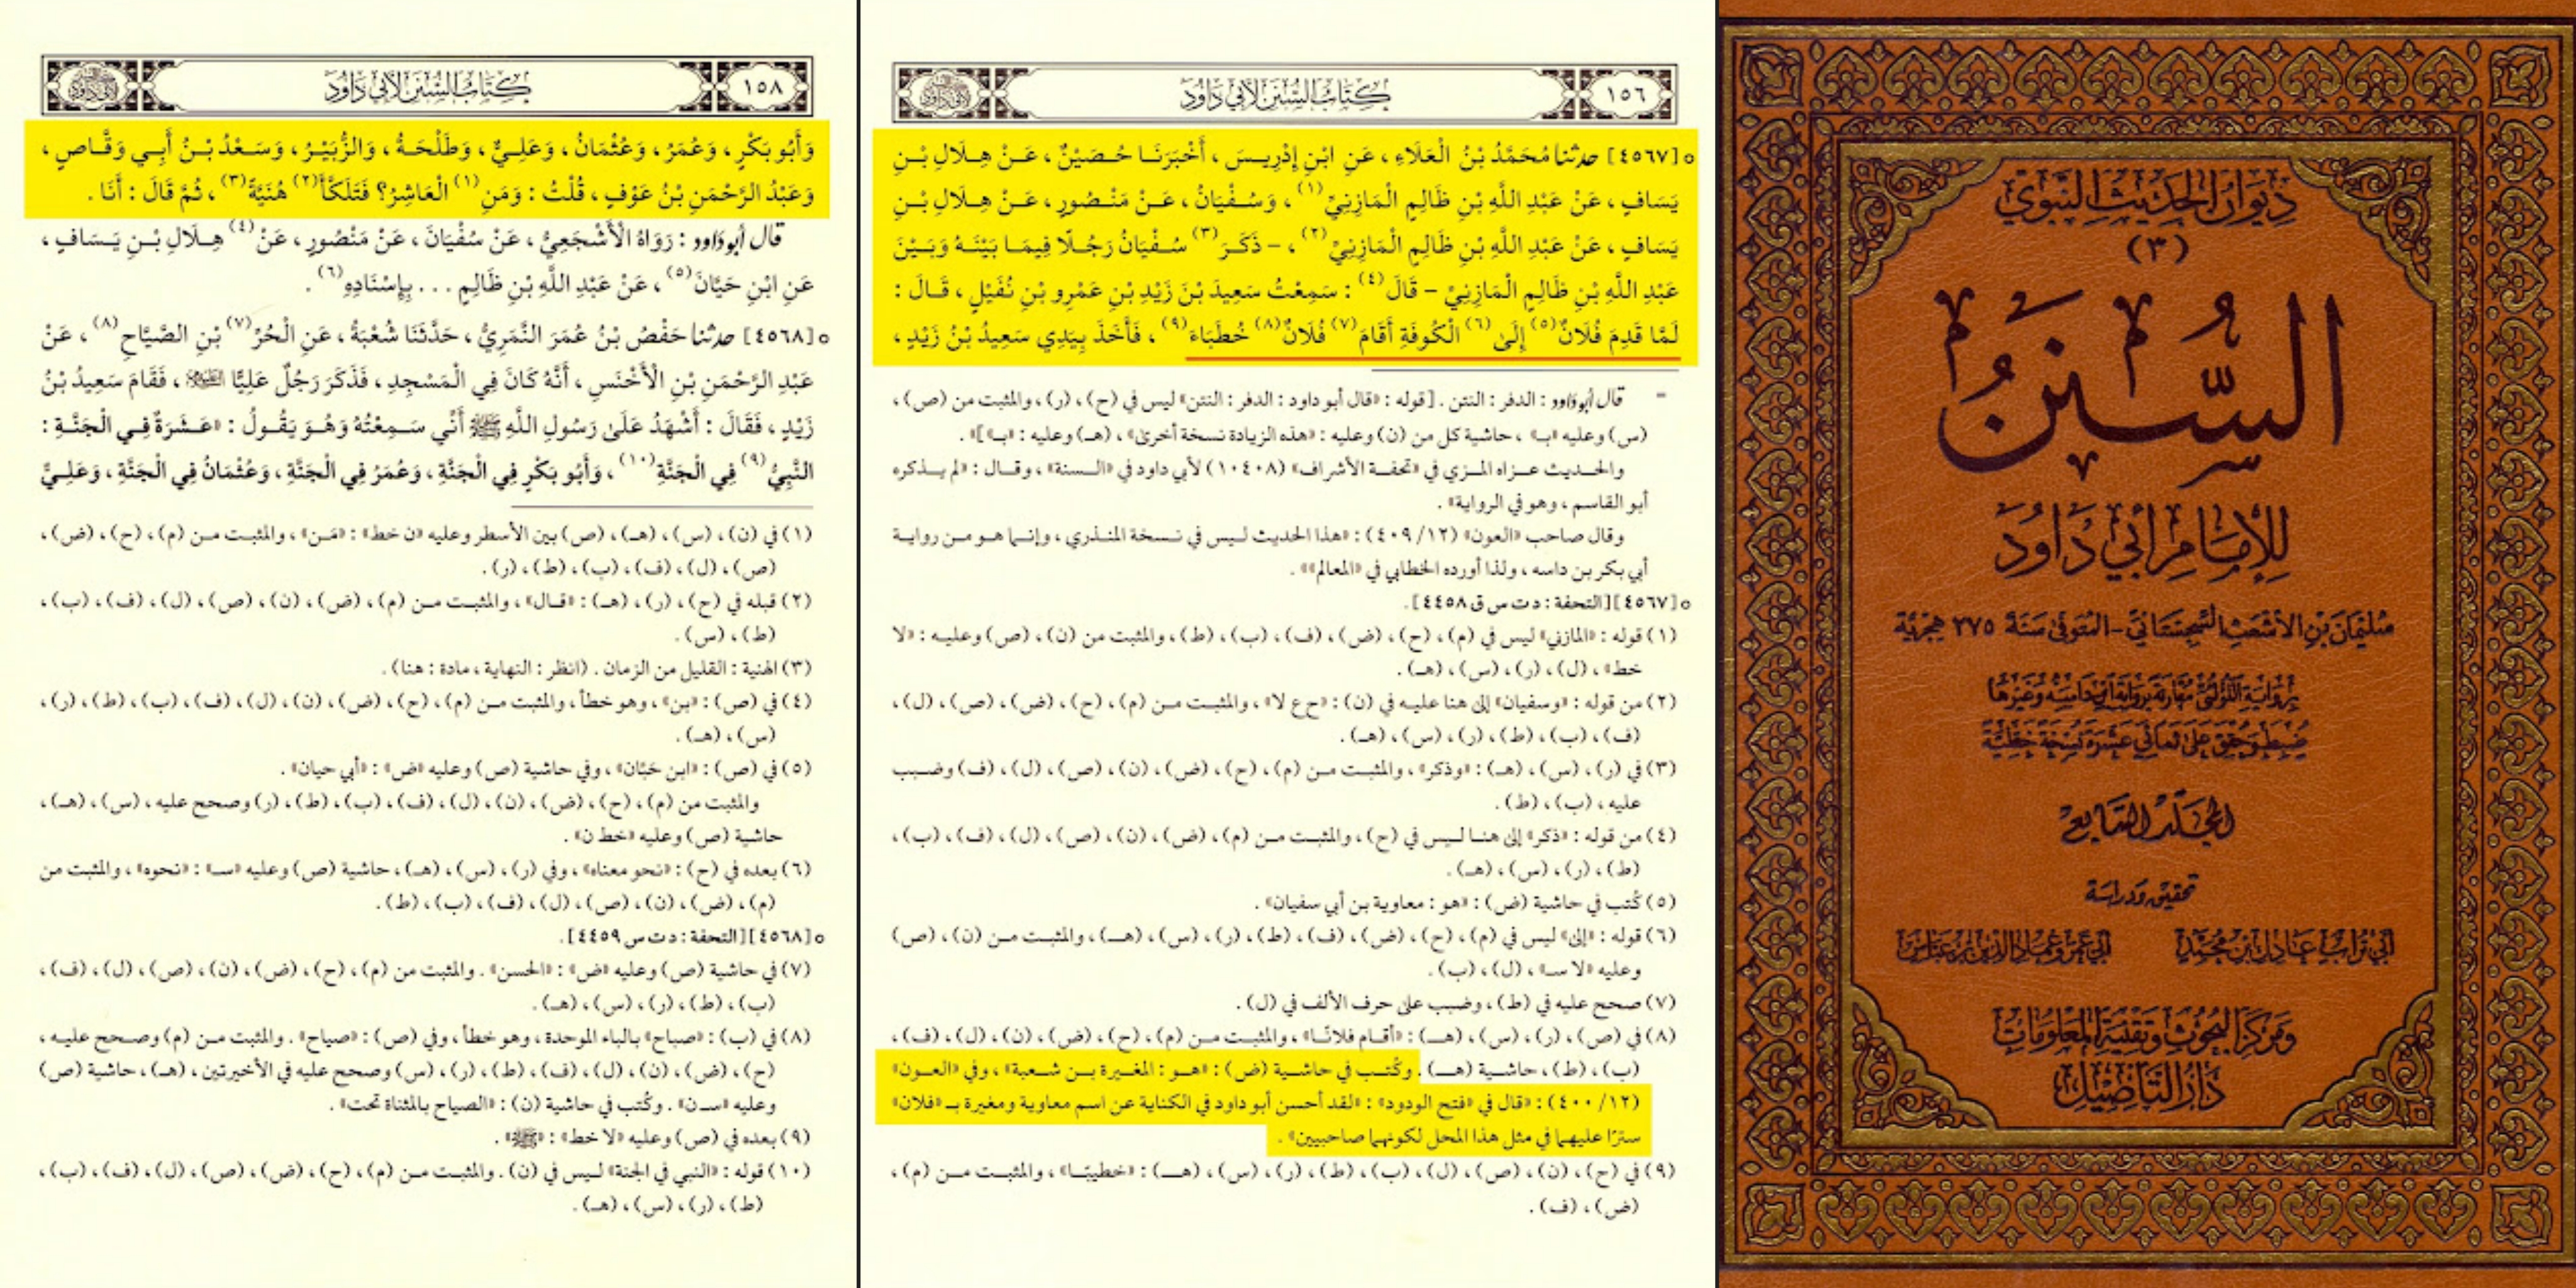 ديوان الحديث النبوي
(٣)
السنن
للإمام أبي داود
سليمان بن الأشعث السجستاني - المتوفى سنة ٢٧٥ هجرية
برواية اللؤلئي مقارنة برواية ابن داسه وغيرها
ضبط وحقق على ثماني عشرة نسخة خطية
المجلد السابع
تحقيق ودراسة
أبي تراب عادل بن محمد أبي عمرو عماد الدين بن عباس
ومركز البحوث وتقنية المعلومات
دار التأصيل
١٥٦ كتاب السنن لأبي داود
° [٤٥٦٧] حدثنا مُحَمَّدُ بْنُ الْعَلَاءِ، عَنِ ابْنِ إِدْرِيسَ، أَخْبَرَنَا حُصَيْنٌ، عَنْ هِلَالِ بْنِ
يَسَافٍ، عَنْ عَبْدِ اللَّهِ بْنِ ظَالِمٍ الْمَازِنِيِّ(١)، وَسُفْيَانُ، عَنْ مَنْصُورٍ، عَنْ هِلَالِ بْنِ
يَسَافٍ، عَنْ عَبْدِ اللَّهِ بْنِ ظَالِمٍ الْمَازِنِيِّ(٢)، - ذَكَرَ(٣) سُفْيَانُ رَجُلًا فِيمَا بَيْنَهُ وَبَيْنَ
عَبْدِ اللَّهِ بْنِ ظَالِمٍ الْمَازِنِيِّ - قَالَ(٤): سَمِعْتُ سَعِيدَ بْنَ زَيْدِ بْنِ عَمْرِو بْنِ نُفَيْلٍ، قَالَ:
لَمَّا قَدِمَ فُلَانٌ(٥) إِلَى(٦) الْكُوفَةِ أَقَامَ(٧) فُلَانٌ(٨) خُطَبَاءَ(٩)، فَأَخَذَ بِيَدِي سَعِيدُ بْنُ زَيْدٍ،
= قال أبو داود: الدفر: النتن. [قوله: «قال أبو داود: الدفر: النتن» ليس في (ح)، (ر)، والمثبت من (ص)،
(س) وعليه «ب»، حاشية كل من (ن) وعليه: «هذه الزيادة نسخة أخرى»، (هـ) وعليه: «بـ»]».
والحديث عزاه المزي في «تحفة الأشراف» (١٠٤٠٨) لأبي داود في «السنة»، وقال: «لم يذكره
أبو القاسم، وهو في الرواية».
وقال صاحب «العون» (١٢/ ٤٠٩): «هذا الحديث ليس في نسخة المنذري، وإنما هو من رواية
أبي بكر بن داسه، ولذا أورده الخطابي في «المعالم»».
° [٤٥٦٧] [التحفة: د ت س ق ٤٤٥٨].
(١) قوله: «المازني» ليس في (م)، (ح)، (ض)، (ف)، (ب)، (ط)، والمثبت من (ن)، (ص) وعليه: «لا
خط»، (ل)، (ر)، (س)، (هـ).
(٢) من قوله: «وسفيان» إلى هنا عليه في (ن): «ح ع لا»، والمثبت من (م)، (ح)، (ض)، (ص)، (ل)،
(ف)، (ب)، (ط)، (ر)، (س)، (هـ).
(٣) في (ر)، (س)، (هـ): «وذكر»، والمثبت من (م)، (ح)، (ض)، (ن)، (ص)، (ل)، (ف) وضبب
عليه، (ب)، (ط).
(٤) من قوله: «ذكر» إلى هنا ليس في (ح)، والمثبت من (م)، (ض)، (ن)، (ص)، (ل)، (ف)، (ب)،
(ط)، (ر)، (س)، (هـ).
(٥) كُتب في حاشية (ض): «هو: معاوية بن أبي سفيان».
(٦) قوله: «إلى» ليس في (م)، (ح)، (ض)، (ف)، (ط)، (ر)، (س)، (هـ)، والمثبت من (ن)، (ص)
وعليه «لا سـ»، (ل)، (ب).
(٧) صحح عليه في (ط)، وضبب على حرف الألف في (ل).
(٨) في (ص)، (ر)، (س)، (هـ): «أقام فلانًا»، والمثبت من (م)، (ح)، (ض)، (ن)، (ل)، (ف)،
(ب)، (ط)، حاشية (هـ). وكُتب في حاشية (ض): «هو: المغيرة بن شعبة»، وفي «العون»
(١٢/ ٤٠٠): «قال في «فتح الودود»: «لقد أحسن أبو داود في الكناية عن اسم معاوية ومغيرة بـ «فلان»
سترًا عليهما في مثل هذا المحل لكونهما صاحبيين».
(٩) في (ح)، (ن)، (ص)، (ل)، (ب)، (ط)، (ر)، (س)، (هـ): «خطيبًا»، والمثبت من (م)،
(ض)، (ف).
١٥٨ كتاب السنن لأبي داود
وَأَبُو بَكْرٍ، وَعُمَرُ، وَعُثْمَانُ، وَعَلِيٌّ، وَطَلْحَةُ، وَالزُّبَيْرُ، وَسَعْدُ بْنُ أَبِي وَقَّاصٍ،
وَعَبْدُ الرَّحْمَنِ بْنُ عَوْفٍ، قُلْتُ: وَمَنِ(١) الْعَاشِرُ؟ فَتَلَكَّأَ(٢) هُنَيَّةً(٣)، ثُمَّ قَالَ: أَنَا.
قال أبو داود: رَوَاهُ الْأَشْجَعِيُّ، عَنْ سُفْيَانَ، عَنْ مَنْصُورٍ، عَنْ(٤) هِلَالِ بْنِ يَسَافٍ،
عَنِ ابْنِ حَيَّانَ(٥)، عَنْ عَبْدِ اللَّهِ بْنِ ظَالِمٍ ... بِإِسْنَادِهِ(٦).
° [٤٥٦٨] حدثنا حَفْصُ بْنُ عُمَرَ النَّمَرِيُّ، حَدَّثَنَا شُعْبَةُ، عَنِ الْحُرِّ(٧) بْنِ الصَّيَّاحِ(٨)، عَنْ
عَبْدِ الرَّحْمَنِ بْنِ الْأَخْنَسِ، أَنَّهُ كَانَ فِي الْمَسْجِدِ، فَذَكَرَ رَجُلٌ عَلِيًّا، فَقَامَ سَعِيدُ بْنُ
زَيْدٍ، فَقَالَ: أَشْهَدُ عَلَى رَسُولِ اللَّهِ ﷺ أَنِّي سَمِعْتُهُ وَهُوَ يَقُولُ: «عَشَرَةٌ فِي الْجَنَّةِ:
النَّبِيُّ(٩) فِي الْجَنَّةِ(١٠)، وَأَبُو بَكْرٍ فِي الْجَنَّةِ، وَعُمَرُ فِي الْجَنَّةِ، وَعُثْمَانُ فِي الْجَنَّةِ، وَعَلِيٌّ
(١) في (ن)، (س)، (هـ)، (ص) بين الأسطر وعليه «ن خط»: «مَن»، والمثبت من (م)، (ح)، (ض)،
(ص)، (ل)، (ف)، (ب)، (ط)، (ر).
(٢) قبله في (ح)، (ر)، (هـ): «قال»، والمثبت من (م)، (ض)، (ن)، (ص)، (ل)، (ف)، (ب)،
(ط)، (س).
(٣) الهنية: القليل من الزمان. (انظر: النهاية، مادة: هنا).
(٤) في (ص): «بن»، وهو خطأ، والمثبت من (م)، (ح)، (ض)، (ن)، (ل)، (ف)، (ب)، (ط)، (ر)،
(س)، (هـ).
(٥) في (ص): «ابن حَبَّان»، وفي حاشية (ص) وعليه «ض»: «أبي حيان».
والمثبت من (م)، (ح)، (ض)، (ن)، (ل)، (ف)، (ب)، (ط)، (ر) وصحح عليه، (س)، (هـ)،
حاشية (ص) وعليه «خط ن».
(٦) بعده في (ح): «نحو معناه»، وفي (ر)، (س)، (هـ)، حاشية (ص) وعليه «سـ»: «نحوه»، والمثبت من
(م)، (ض)، (ن)، (ص)، (ل)، (ف)، (ب)، (ط).
° [٤٥٦٨] [التحفة: د ت س ٤٤٥٩].
(٧) في حاشية (ص) وعليه «ض»: «الحسن». والمثبت من (م)، (ح)، (ض)، (ن)، (ص)، (ل)، (ف)،
(ب)، (ط)، (ر)، (س)، (هـ).
(٨) في (ب): «صباح» بالباء الموحدة، وهو خطأ، وفي (ص): «صياح». والمثبت من (م) وصحح عليه،
(ح)، (ض)، (ن)، (ل)، (ف)، (ط)، (ر)، (س) وصحح عليه في الأخيرتين، (هـ)، حاشية (ص)
وعليه «سـ ن». وكُتب في حاشية (ن): «الصياح بالمثناة تحت».
(٩) بعده في (ص) وعليه «لا خط»: «ﷺ».
(١٠) قوله: «النبي في الجنة» ليس في (ن). والمثبت من (م)، (ح)، (ض)، (ص)، (ل)، (ف)، (ب)،
(ط)، (ر)، (س)، (هـ).